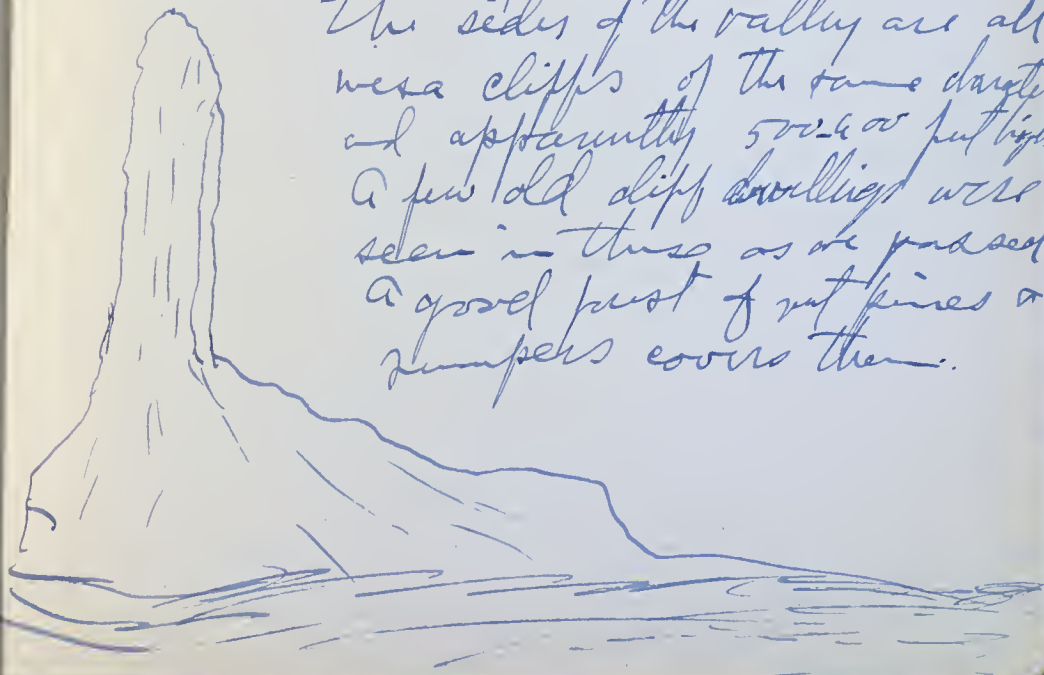 The sides of the valley are all
mesa cliffs of the same
and apparently 500-600 feet
A few old cliff dwellings were
seen in these as we passed
A good forest of nut pines &
junipers covers them.